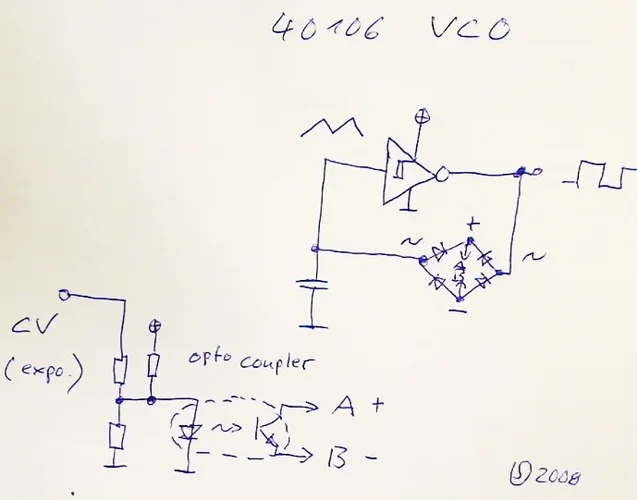 40106 VCO
+
~
~
-
CV
(expo.)
opto coupler
~>
A +
B -
2008